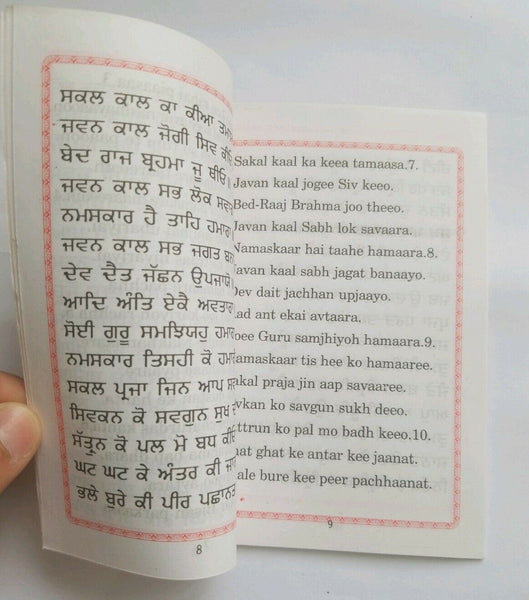 ਸਕਲ ਕਾਲ ਕਾ ਕੀਆ
ਜਵਨ ਕਾਲ ਜੋਗੀ ਸਿਵ
ਬੇਦ ਰਾਜ ਬ੍ਰਹਮਾ ਜੂ ਥੀਓ
ਜਵਨ ਕਾਲ ਸਭ ਲੋਕ
ਨਮਸਕਾਰ ਹੈ ਤਾਹਿ
ਜਵਨ ਕਾਲ ਸਭ ਜਗਤ
ਦੇਵ ਦੈਤ ਜੱਛਨ ਉਪਜਾਯੋ
ਆਦਿ ਅੰਤਿ ਏਕੈ ਅਵਤਾਰਾ
ਸੋਈ ਗੁਰੂ ਸਮਝਿਯਹੁ
ਨਮਸਕਾਰ ਤਿਸਹੀ ਕੋ
ਸਕਲ ਪ੍ਰਜਾ ਜਿਨ ਆਪ
ਸਿਵਕਨ ਕੋ ਸਵਗੁਨ ਸੁਖ
ਸੱਤ੍ਰੁਨ ਕੋ ਪਲ ਮੋ ਬਧ
ਘਟ ਘਟ ਕੇ ਅੰਤਰ ਕੀ
ਭਲੇ ਬੁਰੇ ਕੀ ਪੀਰ ਪਛਾਨਤ
8
Sakal kaal ka keea tamaasa.7.
Javan kaal jogee Siv keeo.
Bed-Raaj Brahma joo theeo.
Javan kaal Sabh lok savaara.
Namaskaar hai taahe hamaara.8.
avan kaal sabh jagat banaayo.
Dev dait jachhan upjaayo.
ad ant ekai avtaara.
oee Guru samjhiyoh hamaara.9.
amaskaar tis hee ko hamaaree.
akal praja jin aap savaaree.
vkan ko savgun sukh deeo.
ttrun ko pal mo badh keeo.10.
at ghat ke antar kee jaanat.
ale bure kee peer pachhaanat.
9